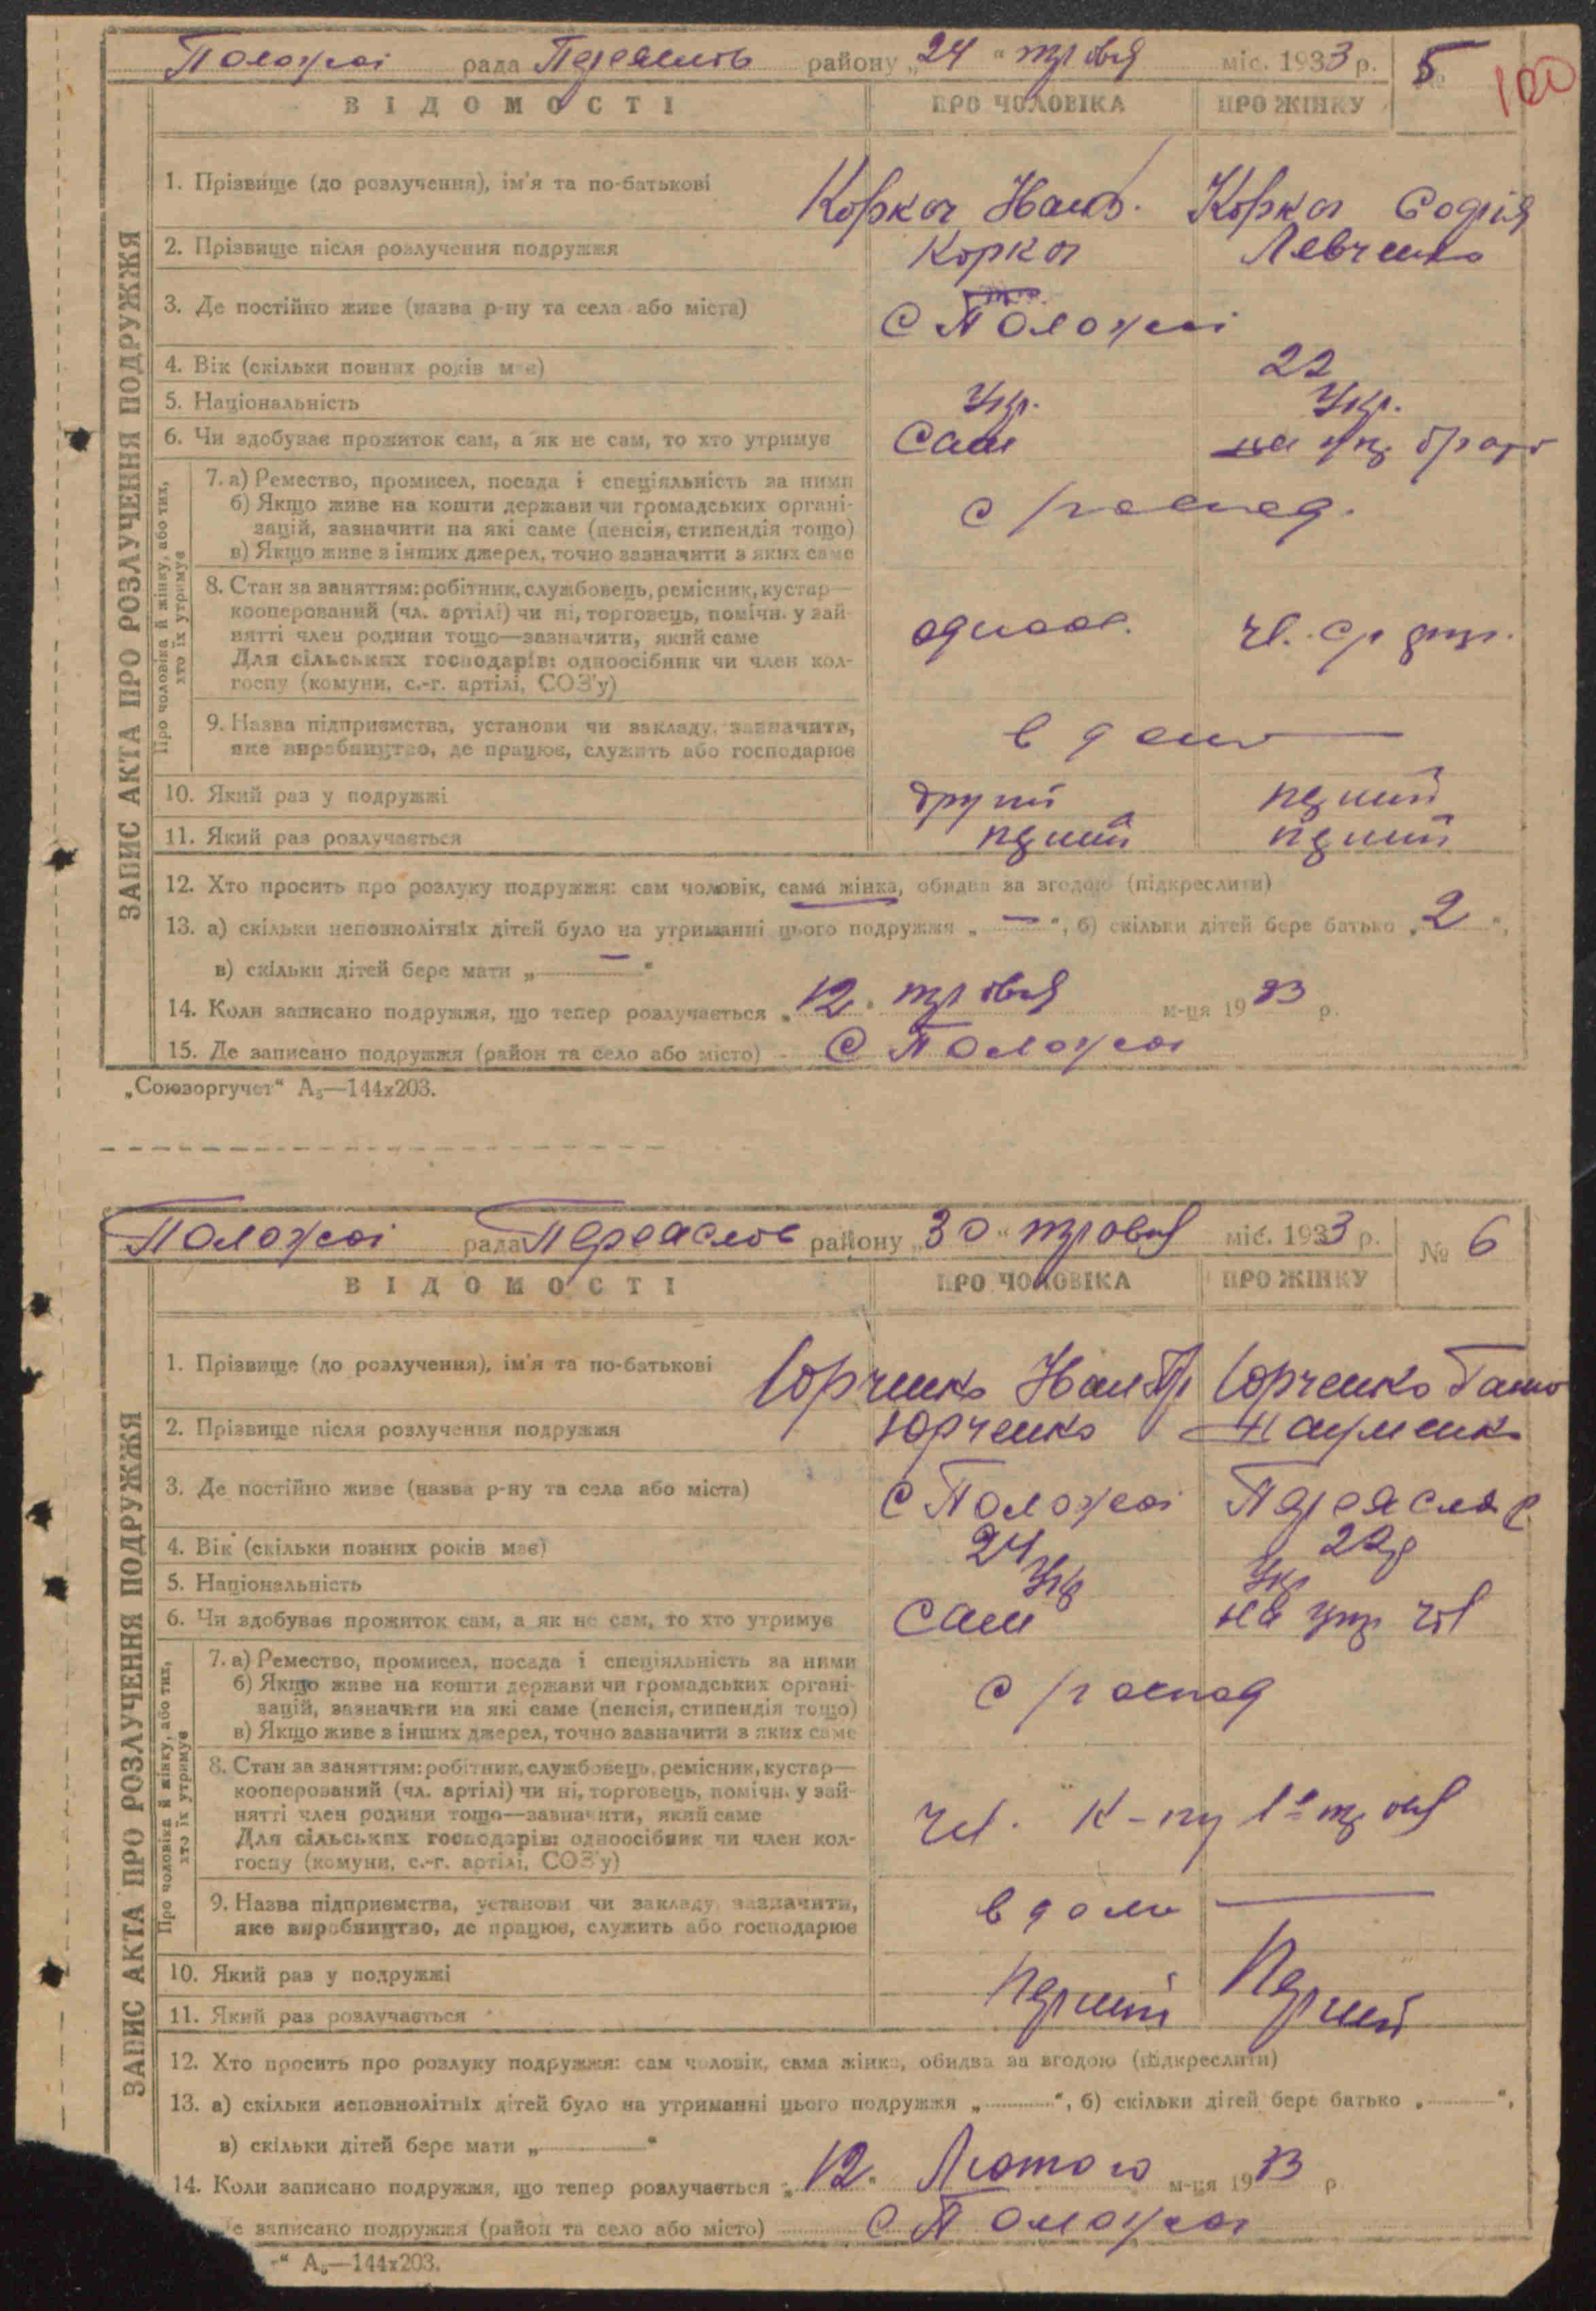 Положаї рада Переяслів району „24“ травня міс. 1933 р. № 5
100
ВІДОМОСТІ ПРО ЧОЛОВІКА ПРО ЖІНКУ
ЗАПИС АКТА ПРО РОЗЛУЧЕННЯ ПОДРУЖЖЯ
1. Прізвище (до розлучення), ім'я та по-батькові Коркач Коркач Софія
2. Прізвище після розлучення подружжя Коркач Левченко
3. Де постійно живе (назва р-ну та села або міста) С Положаї
4. Вік (скільки повних років має) 22
5. Національність Укр. Укр.
6. Чи здобуває прожиток сам, а як не сам, то хто утримує Сам на утр брата
Про чоловіка й жінку, або тих,
хто їх утримує
7. а) Ремество, промисел, посада і спеціяльність за ними
б) Якщо живе на кошти держави чи громадських органі-
зацій, зазначити на які саме (пенсія, стипендія тощо)
в) Якщо живе з інших джерел, точно зазначити з яких саме
8. Стан за заняттям: робітник, службовець, ремісник, кустар—
кооперований (чл. артілі) чи ні, торговець, помічн. у зай-
нятті член родини тощо—зазначити, який саме
Для сільських господарів: одноосібник чи член кол-
госпу (комуни, с.-г. артілі, СОЗ'у)
одноос.
9. Назва підприємства, установи чи закладу, зазначити,
яке виробництво, де працює, служить або господарює
в дома
10. Який раз у подружжі другий перший
11. Який раз розлучається перший перший
12. Хто просить про розлуку подружжя: сам чоловік, сама жінка, обидва за згодою (підкреслити)
13. а) скільки неповнолітніх дітей було на утриманні цього подружжя „ — “, б) скільки дітей бере батько „2“,
в) скільки дітей бере мати „ — “
14. Коли записано подружжя, що тепер розлучається „12“ травня м-ця 1933 р.
15. Де записано подружжя (район та село або місто) С Положаї
„Союзоргучет“ А₅—144х203.
Положаї рада Переяслов району „30“ травня міс. 1933 р. № 6
ВІДОМОСТІ ПРО ЧОЛОВІКА ПРО ЖІНКУ
ЗАПИС АКТА ПРО РОЗЛУЧЕННЯ ПОДРУЖЖЯ
1. Прізвище (до розлучення), ім'я та по-батькові Юрченко Юрченко
2. Прізвище після розлучення подружжя Юрченко Науменко
3. Де постійно живе (назва р-ну та села або міста) С Положаї Переяслав
4. Вік (скільки повних років має) 24 22р
5. Національність Укр Укр
6. Чи здобуває прожиток сам, а як не сам, то хто утримує Сам на утр чол
Про чоловіка й жінку, або тих,
хто їх утримує
7. а) Ремество, промисел, посада і спеціяльність за ними
б) Якщо живе на кошти держави чи громадських органі-
зацій, зазначити на які саме (пенсія, стипендія тощо)
в) Якщо живе з інших джерел, точно зазначити з яких саме
8. Стан за заняттям: робітник, службовець, ремісник, кустар—
кооперований (чл. артілі) чи ні, торговець, помічн. у зай-
нятті член родини тощо—зазначити, який саме
Для сільських господарів: одноосібник чи член кол-
госпу (комуни, с.-г. артілі, СОЗ'у)
чл. к-пу 1е травня
9. Назва підприємства, установи чи закладу, зазначити,
яке виробництво, де працює, служить або господарює
в дома
10. Який раз у подружжі
11. Який раз розлучається Перший Перший
12. Хто просить про розлуку подружжя: сам чоловік, сама жінка, обидва за згодою (підкреслити)
13. а) скільки неповнолітніх дітей було на утриманні цього подружжя „ “, б) скільки дітей бере батько „ “,
в) скільки дітей бере мати „ “
14. Коли записано подружжя, що тепер розлучається „12“ Лютого м-ця 1933 р
е записано подружжя (район та село або місто) С Положаї
“ А₅—144х203.